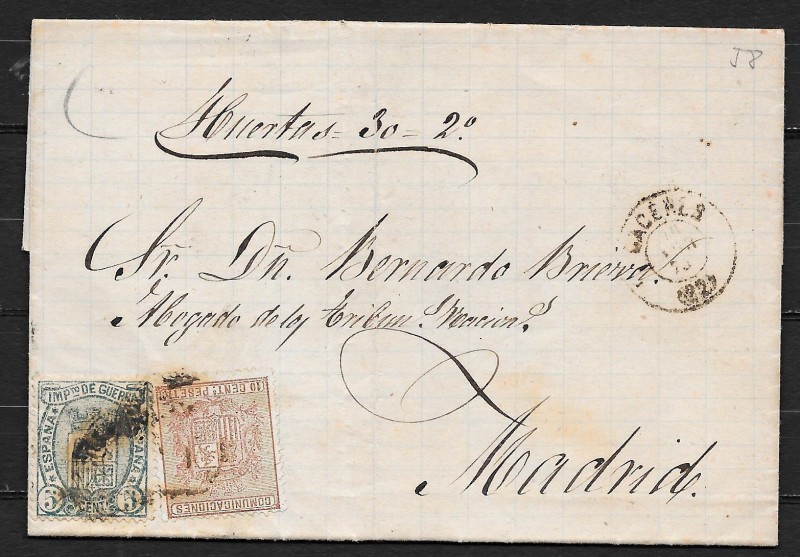 J8
Huertas = 30 = 2º
CACERES
(22)
Sr. Dn. Bernardo Brieva.
Abogado de los Tribun.s Nacion.s
Madrid.
IMPTO DE GUERRA
ESPAÑA
5 CENTS 5
10 CENT. PESETA
COMUNICACIONES